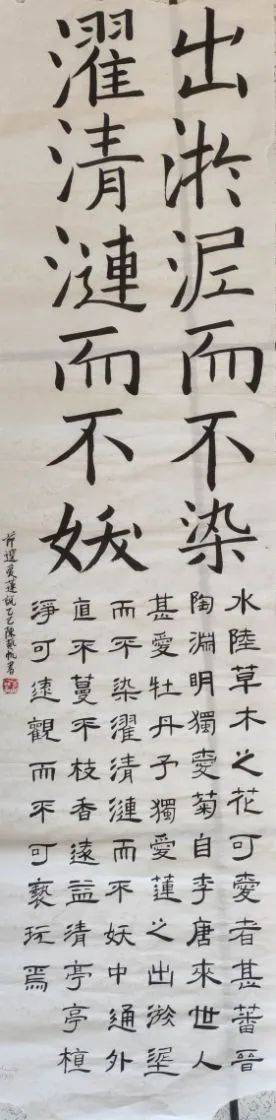 出淤泥而不染
濯清漣而不妖
水陸草木之花可愛者甚蕃晉
陶淵明獨愛菊自李唐來世人
甚愛牡丹予獨愛蓮之出淤泥
而不染濯清漣而不妖中通外
直不蔓不枝香遠益清亭亭植
淨可遠觀而不可褻玩焉
選愛蓮說乙巳陳書